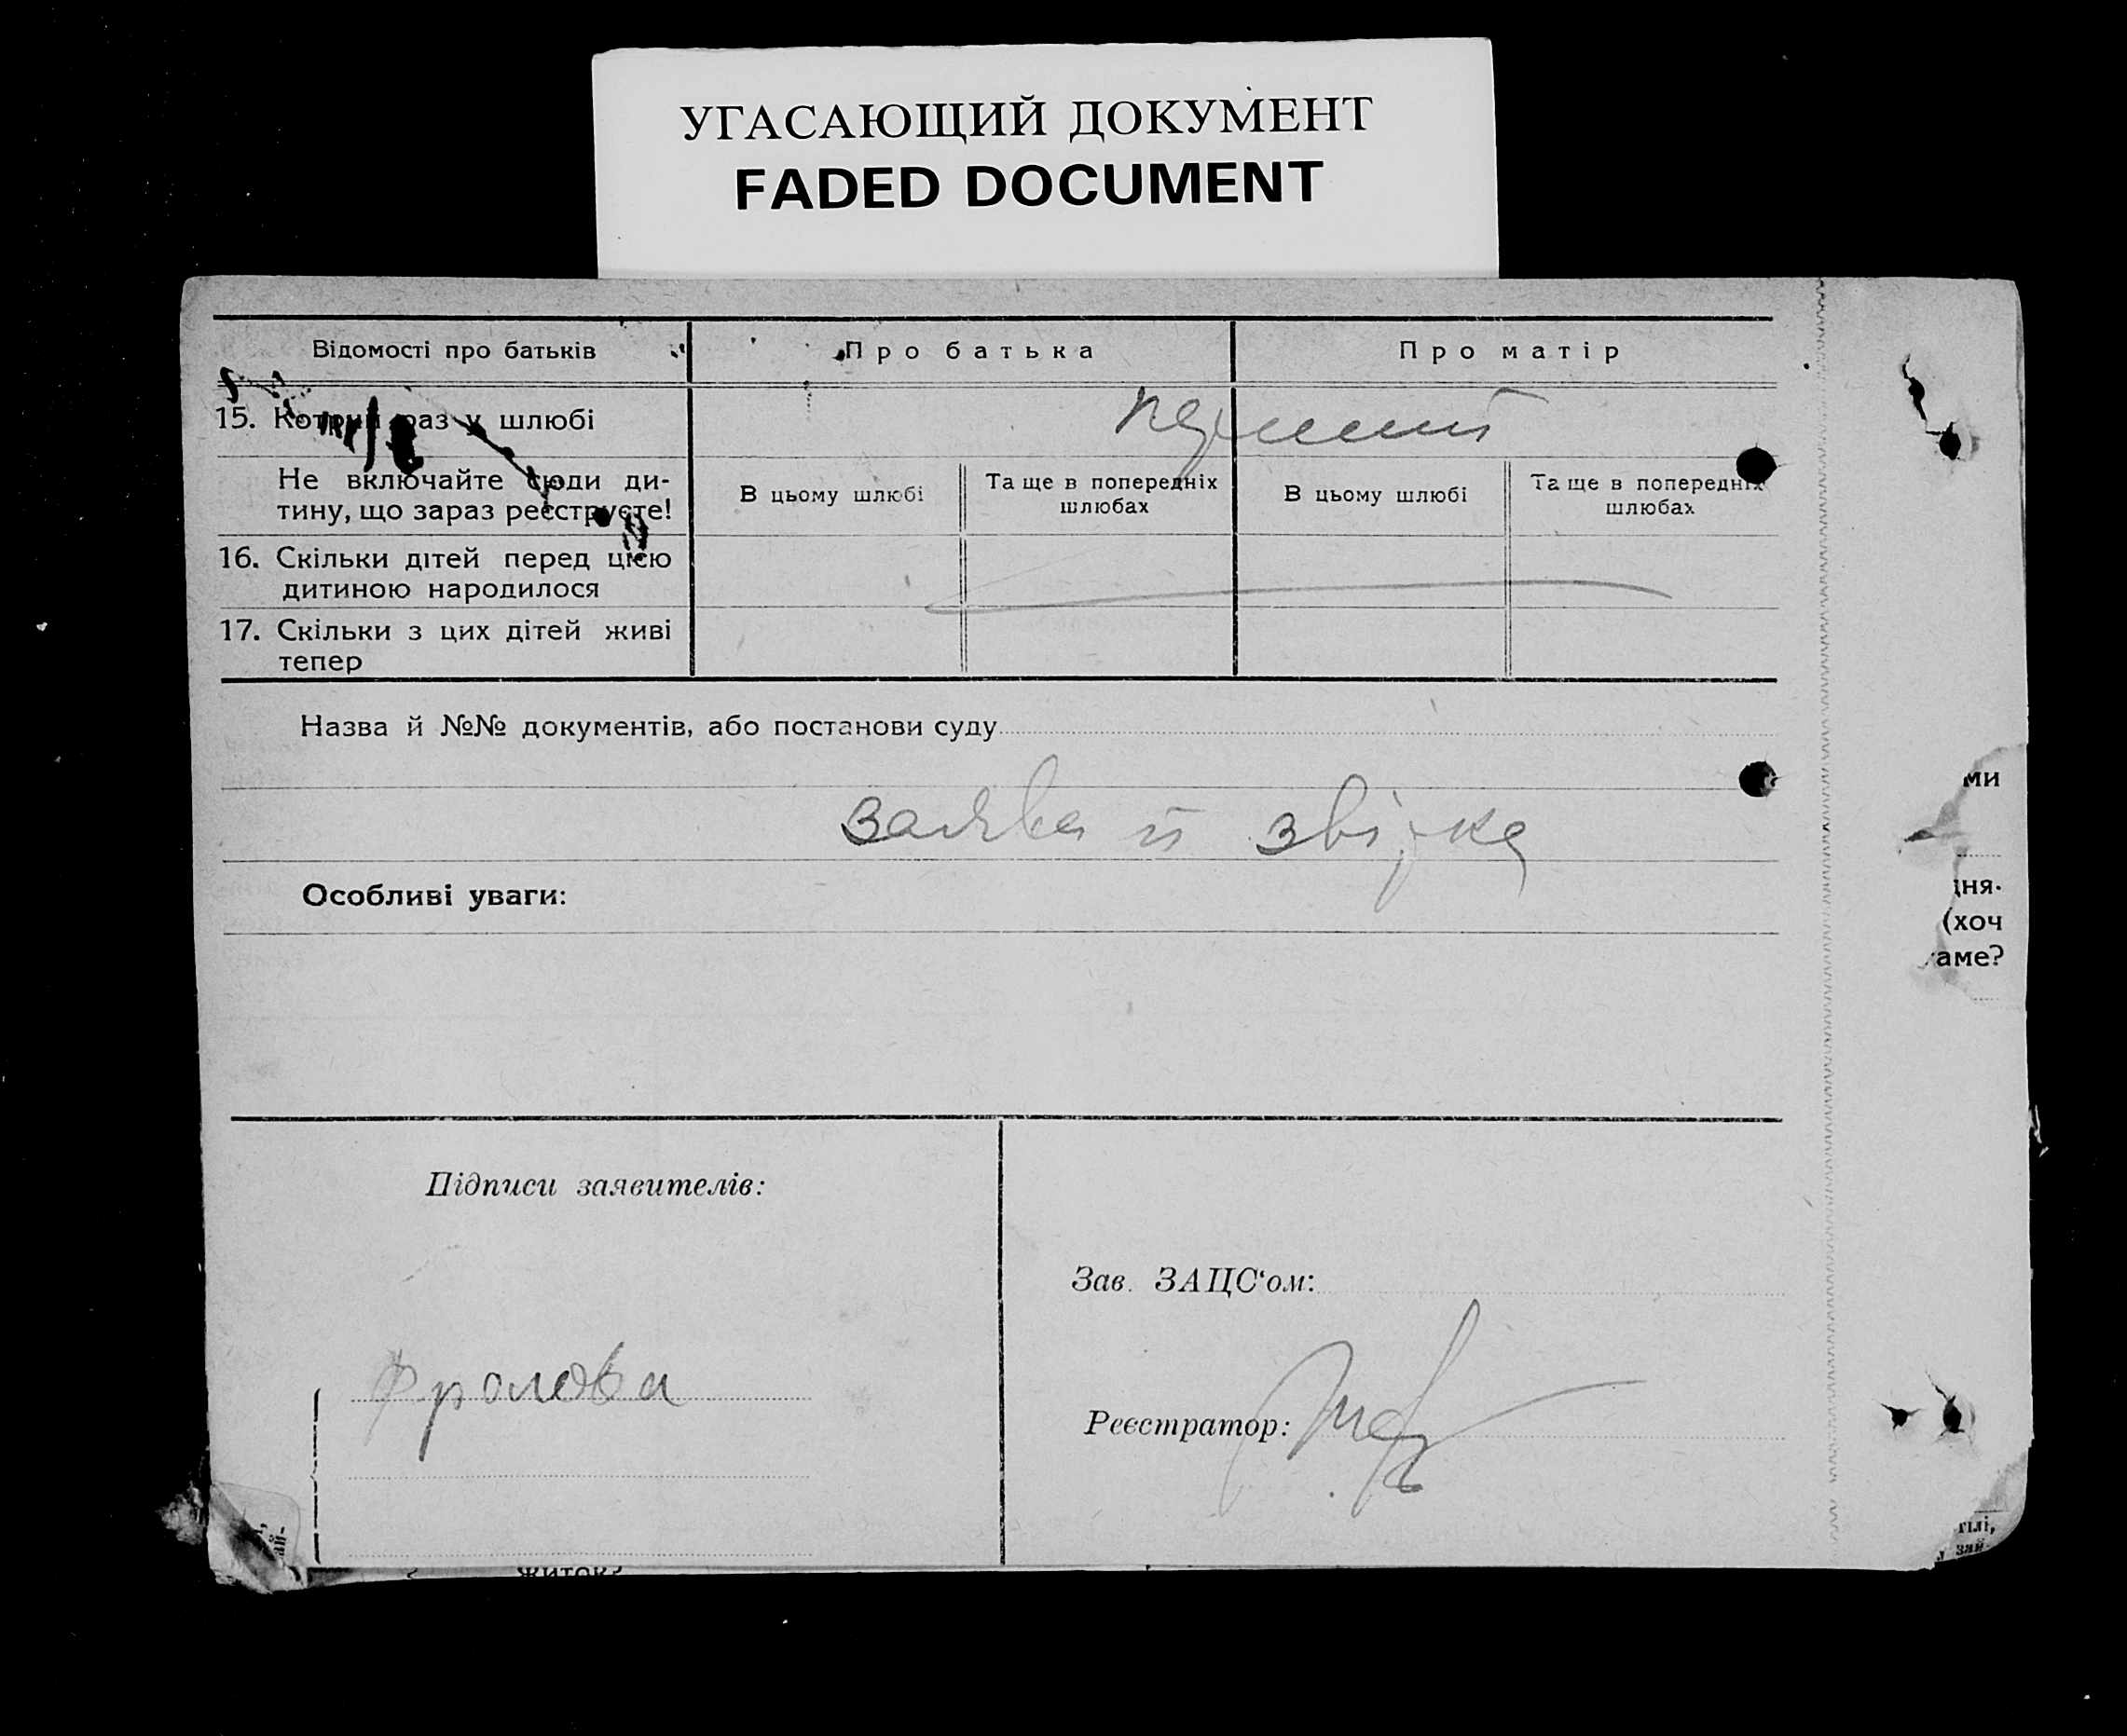 УГАСАЮЩИЙ ДОКУМЕНТ
FADED DOCUMENT
Відомості про батьків
Про батька
Про матір
15. Котрий раз у шлюбі
перший
Не включайте сюди ди-
тину, що зараз реєструєте!
В цьому шлюбі
Та ще в попередніх
шлюбах
В цьому шлюбі
Та ще в попередніх
шлюбах
16. Скільки дітей перед цією
дитиною народилося
17. Скільки з цих дітей живі
тепер
Назва й №№ документів, або постанови суду
заява й звірка
Особливі уваги:
ми
дня-
(хоч
саме?
Підписи заявителів:
Фролова
Зав. ЗАЦС‘ом:
Реєстратор: